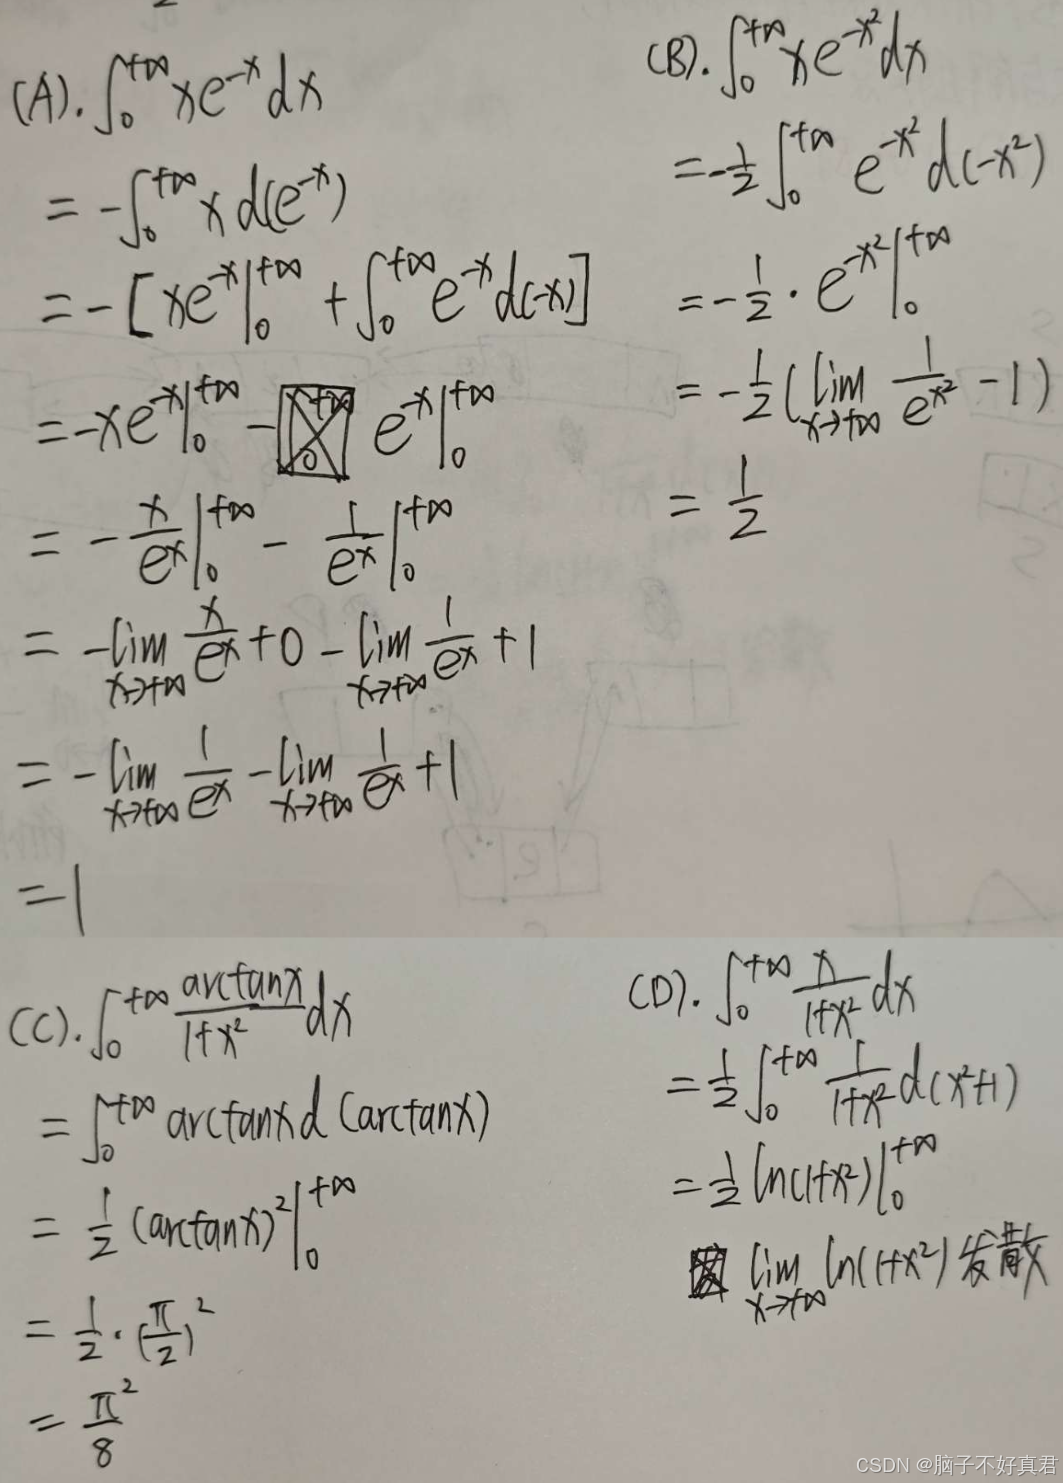 (A). ∫₀^{+∞} xe^{-x} dx
= -∫₀^{+∞} x d(e^{-x})
= -[xe^{-x}|₀^{+∞} + ∫₀^{+∞} e^{-x} d(-x)]
= -xe^{-x}|₀^{+∞} - e^{-x}|₀^{+∞}
= - x/e^x |₀^{+∞} - 1/e^x |₀^{+∞}
= -lim_{x→+∞} x/e^x + 0 - lim_{x→+∞} 1/e^x + 1
= -lim_{x→+∞} 1/e^x - lim_{x→+∞} 1/e^x + 1
= 1
(B). ∫₀^{+∞} xe^{-x²} dx
= -1/2 ∫₀^{+∞} e^{-x²} d(-x²)
= -1/2 · e^{-x²}|₀^{+∞}
= -1/2 (lim_{x→+∞} 1/e^{x²} - 1)
= 1/2
(C). ∫₀^{+∞} arctanx/(1+x²) dx
= ∫₀^{+∞} arctanx d(arctanx)
= 1/2 (arctanx)²|₀^{+∞}
= 1/2 · (π/2)²
= π²/8
(D). ∫₀^{+∞} x/(1+x²) dx
= 1/2 ∫₀^{+∞} 1/(1+x²) d(x²+1)
= 1/2 ln(1+x²)|₀^{+∞}
lim_{x→+∞} ln(1+x²) 发散
CSDN @脑子不好真君